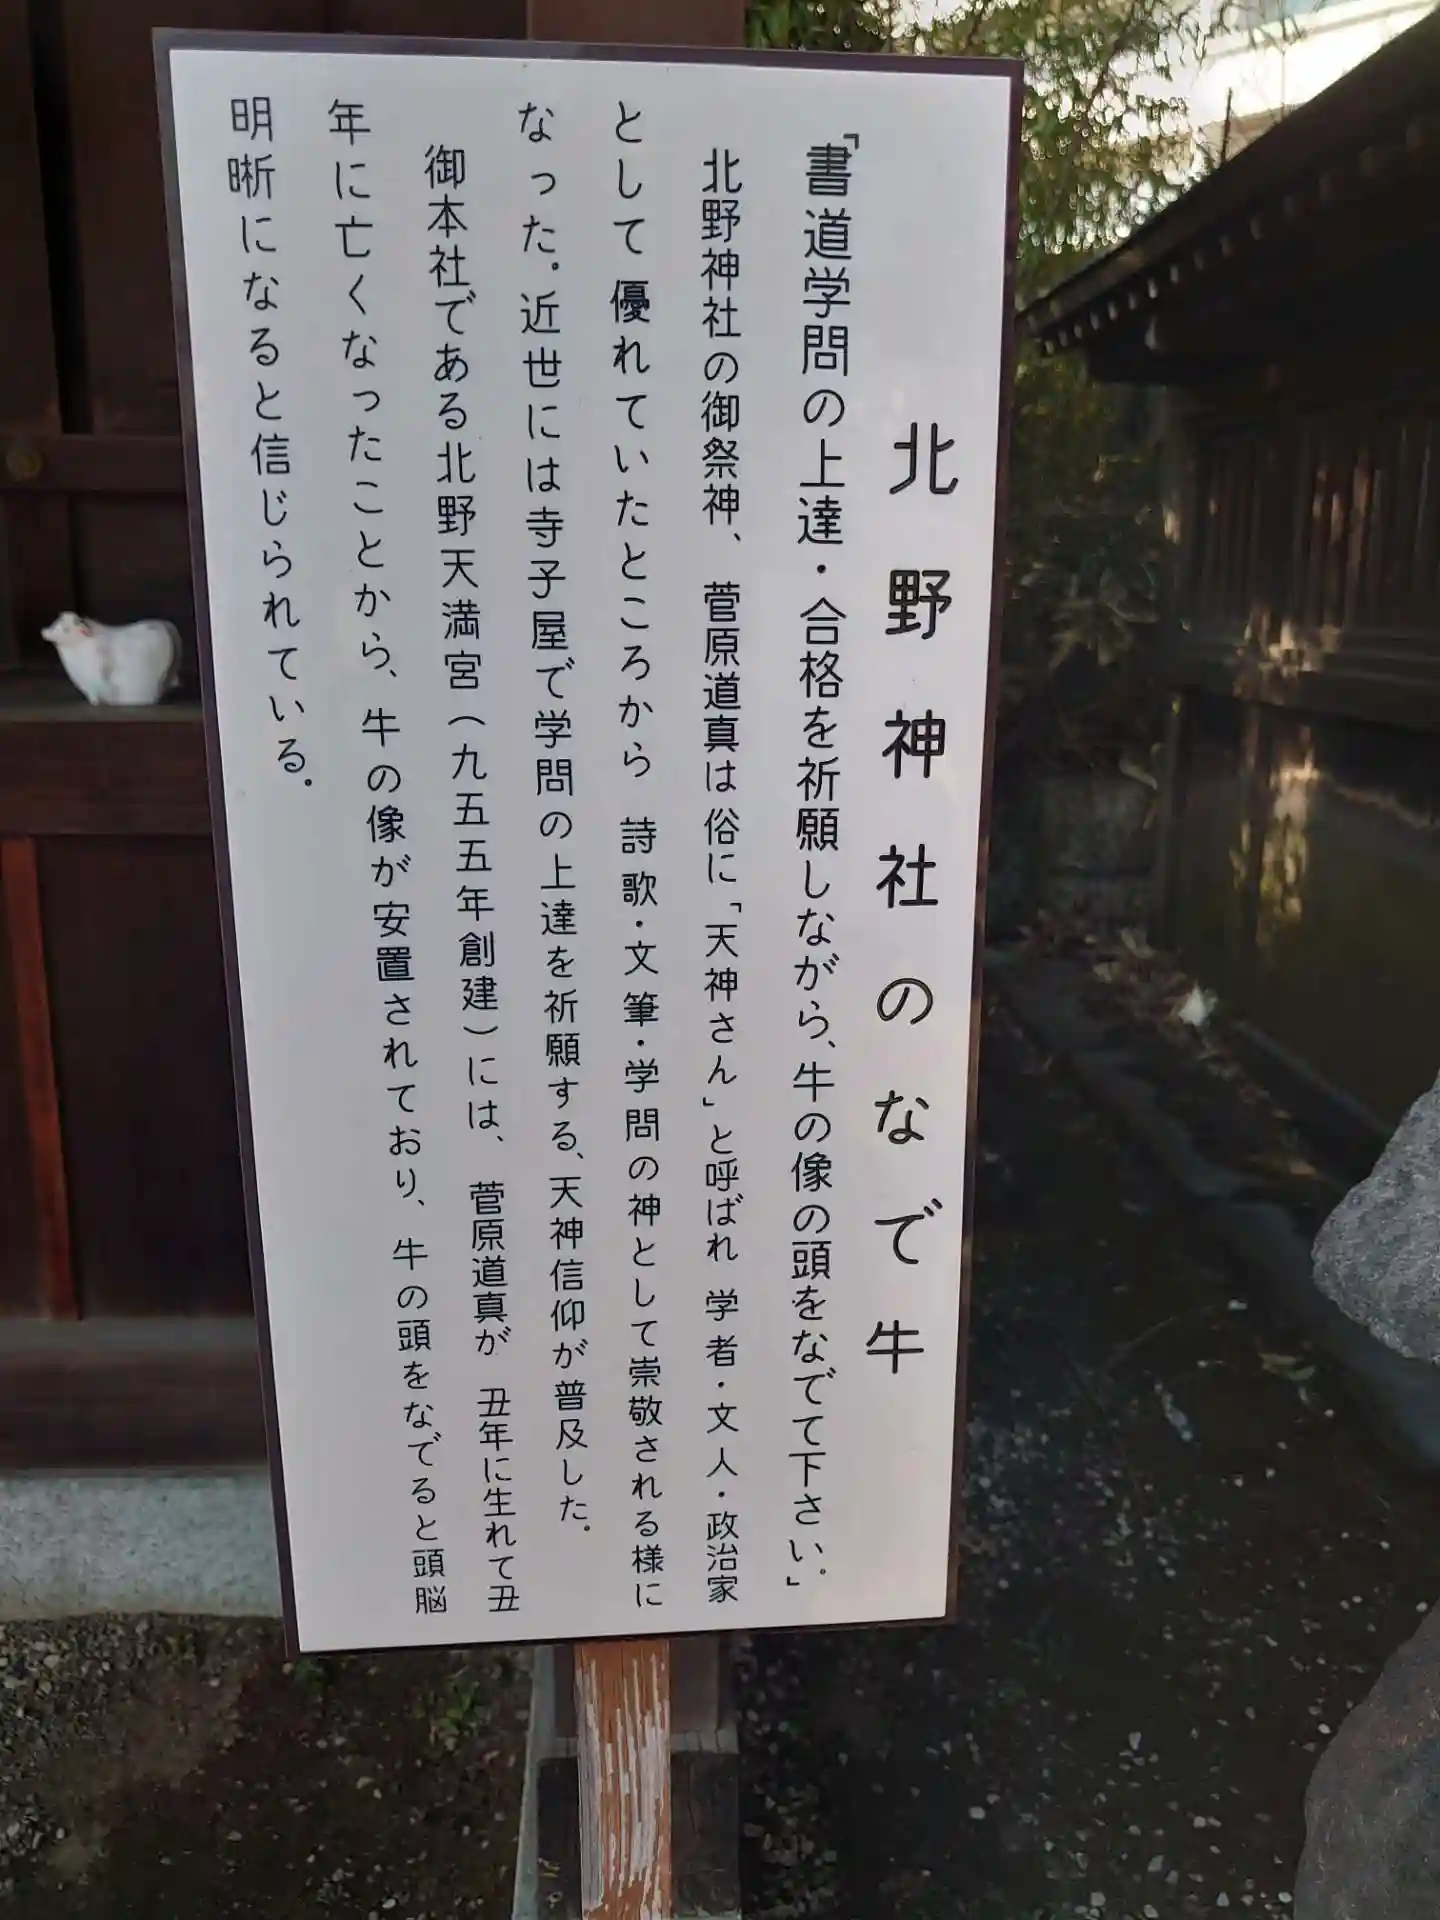 北野神社のなで牛
「書道学問の上達・合格を祈願しながら、牛の像の頭をなでて下さい。」
北野神社の御祭神、菅原道真は俗に「天神さん」と呼ばれ 学者・文人・政治家
として優れていたところから 詩歌・文筆・学問の神として崇敬される様に
なった。近世には寺子屋で学問の上達を祈願する、天神信仰が普及した。
御本社である北野天満宮(九五五年創建)には、菅原道真が 丑年に生れて丑
年に亡くなったことから、牛の像が安置されており、牛の頭をなでると頭脳
明晰になると信じられている。